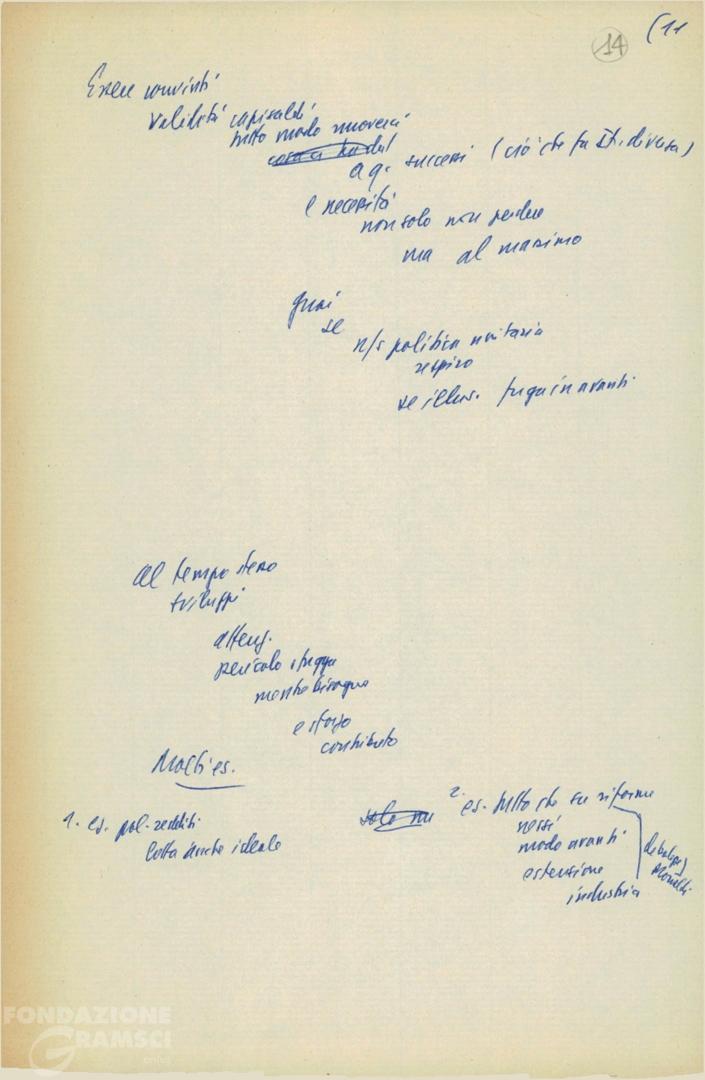 (11
14
Essere convinti
Validità capisaldi
tutto modo muoverci
a q. successi (ciò che fa st. diversa)
e necessità
non solo non perdere
ma al massimo
guai
se
n/s politica unitaria
respiro
se illus. fuga in avanti
al tempo stesso
sviluppi
atteng.
pericolo sfugga
mentre bisogna
e sforzo
contributo
Molti es.
1. es. pol. redditi
lotta anche ideale
solo su
2. es. tutto che su riforme
nessi
modo avanti
estensione
industria
FONDAZIONE
GRAMSCI
onlus